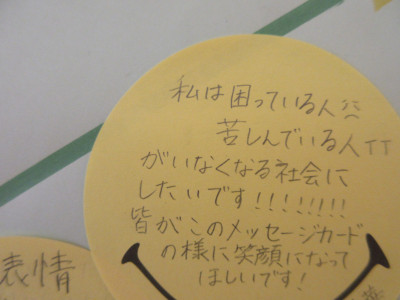 私は困っている人
苦しんでいる人TT
がいなくなる社会に
したいです!!!!!!!!
皆がこのメッセージカード
の様に笑顔になって
ほしいです!
表情